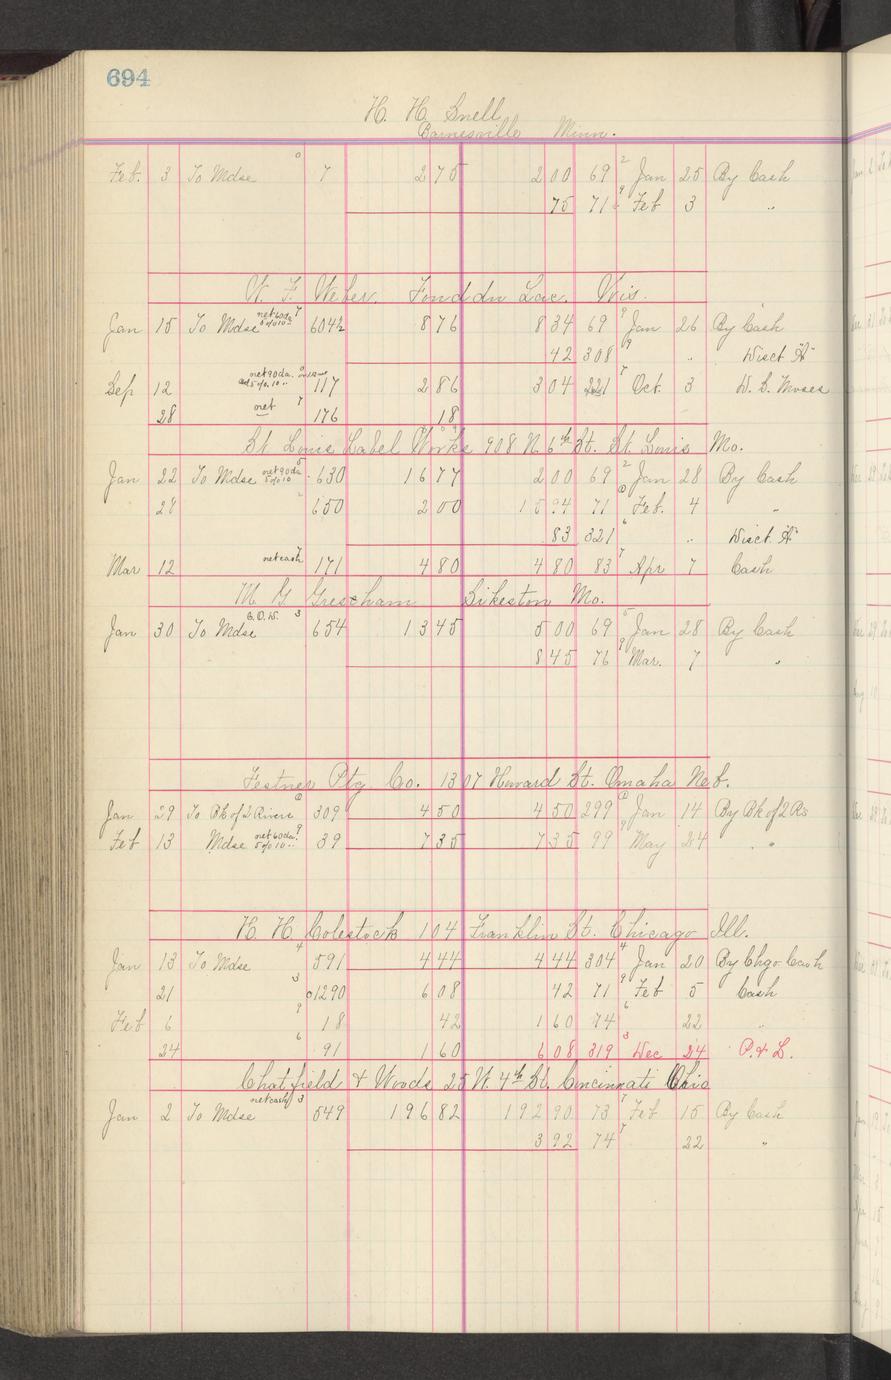 694
H. H. Snell
Barnesville Minn.
Feb. 3 To Mdse 0 7 2 75 2 00 69 2 Jan 25 By Cash
75 71 9 Feb 3 "
W. F. Weber. Fond du Lac. Wis.
Jan 15 To Mdse net 60 da 5% 10 " 7 604½ 8 76 8 34 69 9 Jan 26 By Cash
42 308 9 " Disct "A"
Sep 12 net 90 da. 5% 10 " 117 2 86 3 04 221 7 Oct. 3 W. S. Moses
28 net 7 176 18
St Louis Label Works 908 N. 6th St. St. Louis Mo.
Jan 22 To Mdse net 90 da 5% 10 5 630 16 77 2 00 69 2 Jan 28 By Cash
28 2 650 2 00 15 94 71 0 Feb. 4 "
83 321 6 " Disct. "A"
Mar 12 net cash 7 171 4 80 4 80 83 7 Apr 7 Cash
M. G. Gresham Sikeston Mo.
Jan 30 To Mdse C.O.D. 3 654 13 45 5 00 69 5 Jan 28 By Cash
8 45 76 9 Mar. 7 "
Festner Ptg Co. 1307 Howard St. Omaha Neb.
Jan 29 To Bk of 2 Rivers 0 309 4 50 4 50 299 0 Jan 14 By Bk of 2 Rs
Feb 13 Mdse net 60 da. 5% 10 " 9 39 7 35 7 35 99 9 May 24 "
H. H. Colestock 104 Franklin St. Chicago Ill.
Jan 13 To Mdse 4 591 4 44 4 44 304 4 Jan 20 By Chgo Cash
21 3 01290 6 08 42 71 9 Feb 5 Cash
Feb 6 9 18 42 1 60 74 6 22 "
24 6 91 1 60 6 08 319 3 Dec 24 P. & L.
Chatfield & Woods 25 W. 4th St. Cincinnati Ohio
Jan 2 To Mdse net cash 3 549 196 82 192 90 73 7 Feb 15 By Cash
3 92 74 7 22 "